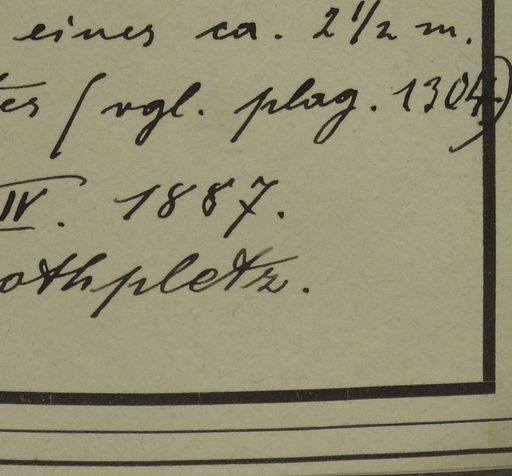 eines ca. 2 1/2 m.
es (vgl. plag. 1304)
IV. 1887.
othpletz.